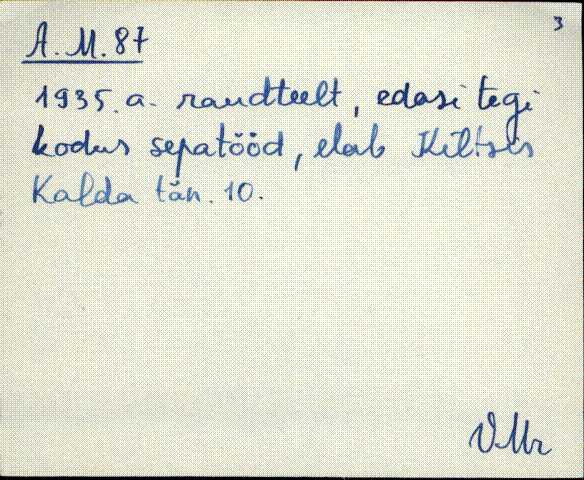 3
A. M. 87
1935. a. raudteelt, edasi tegi
kodus sepatööd, elab Kiltsis
Kalda tän. 10.
VMr